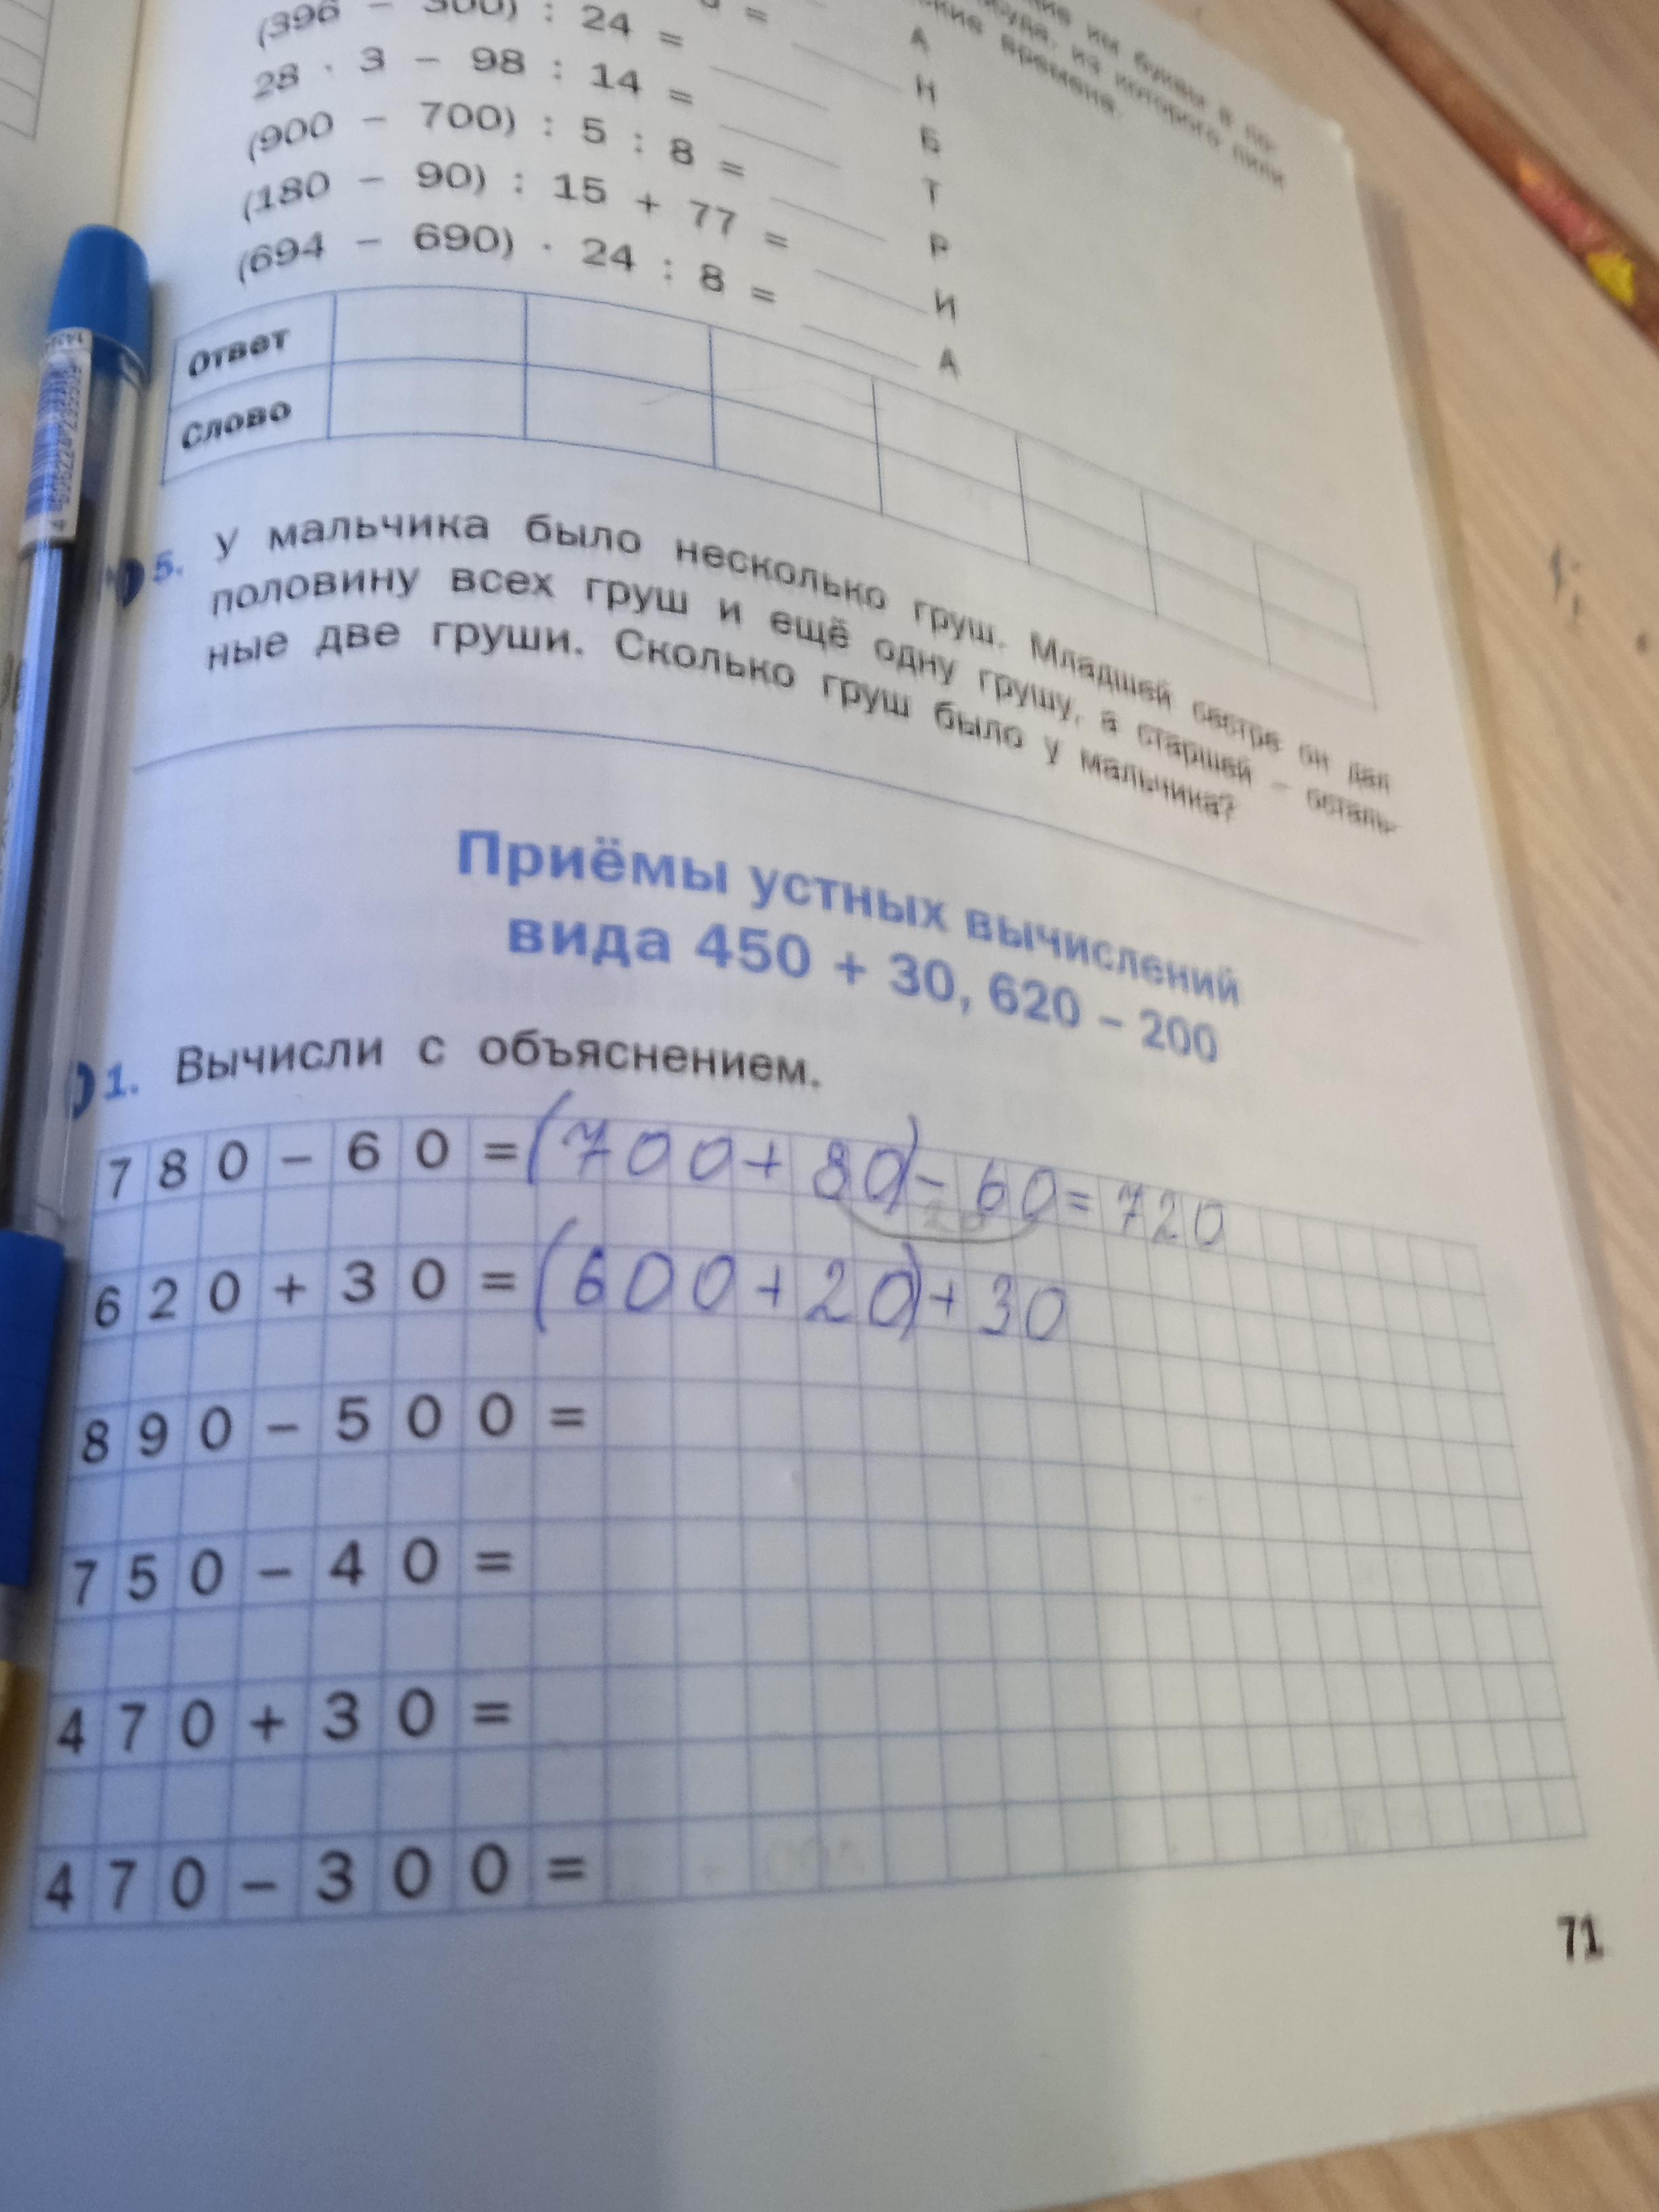 (396 – 300) : 24 =
А
28 · 3 – 98 : 14 =
Н
(900 – 700) : 5 : 8 =
Б
(180 – 90) : 15 + 77 =
Т
Р
(694 – 690) · 24 : 8 =
И
А
Ответ
Слово
5. У мальчика было несколько груш. Младшей сестре он дал
половину всех груш и ещё одну грушу, а старшей – осталь-
ные две груши. Сколько груш было у мальчика?
Приёмы устных вычислений
вида 450 + 30, 620 – 200
1. Вычисли с объяснением.
780 – 60 = (700 + 80) – 60 = 720
20
620 + 30 = (600 + 20) + 30
890 – 500 =
750 – 40 =
470 + 30 =
470 – 300 =
71